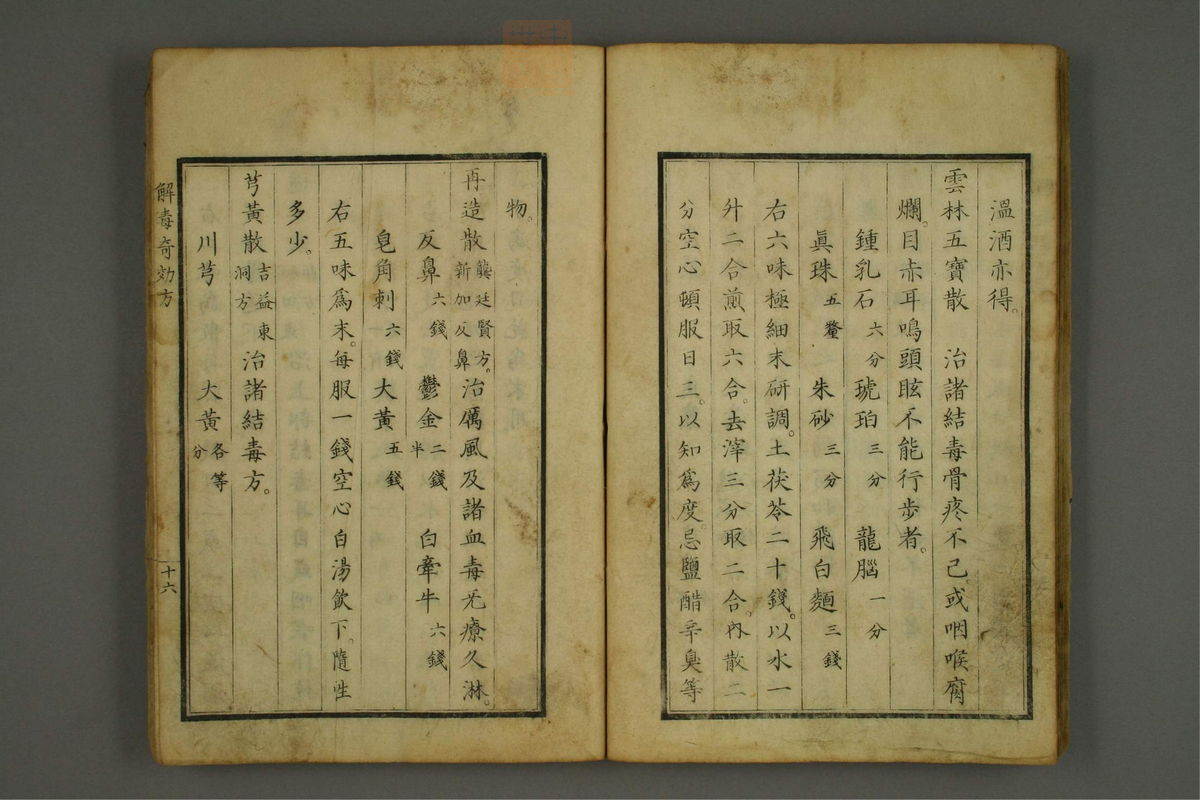 溫酒亦得。
雲林五寶散　治諸結毒骨疼不已。或咽喉腐
爛。目赤耳鳴頭眩不能行步者。
鍾乳石六分　琥珀三分　龍腦一分
眞珠五釐　朱砂三分　飛白麵三錢
右六味極細末研調。土茯苓二十錢。以水一
升二合煎取六合。去滓三分取二合。內散二
分空心頓服日三。以知爲度。忌鹽醋辛臭等
物。
再造散龔廷賢方。新加反鼻治厲風及諸血毒兄療久淋。
反鼻六錢　鬱金二錢半　白牽牛六錢
皂角刺六錢　大黃五錢
右五味爲末。每服一錢空心白湯飲下。隨性
多少。
芎黃散吉益東洞方治諸結毒方。
川芎　大黃各等分
解毒奇効方
十六